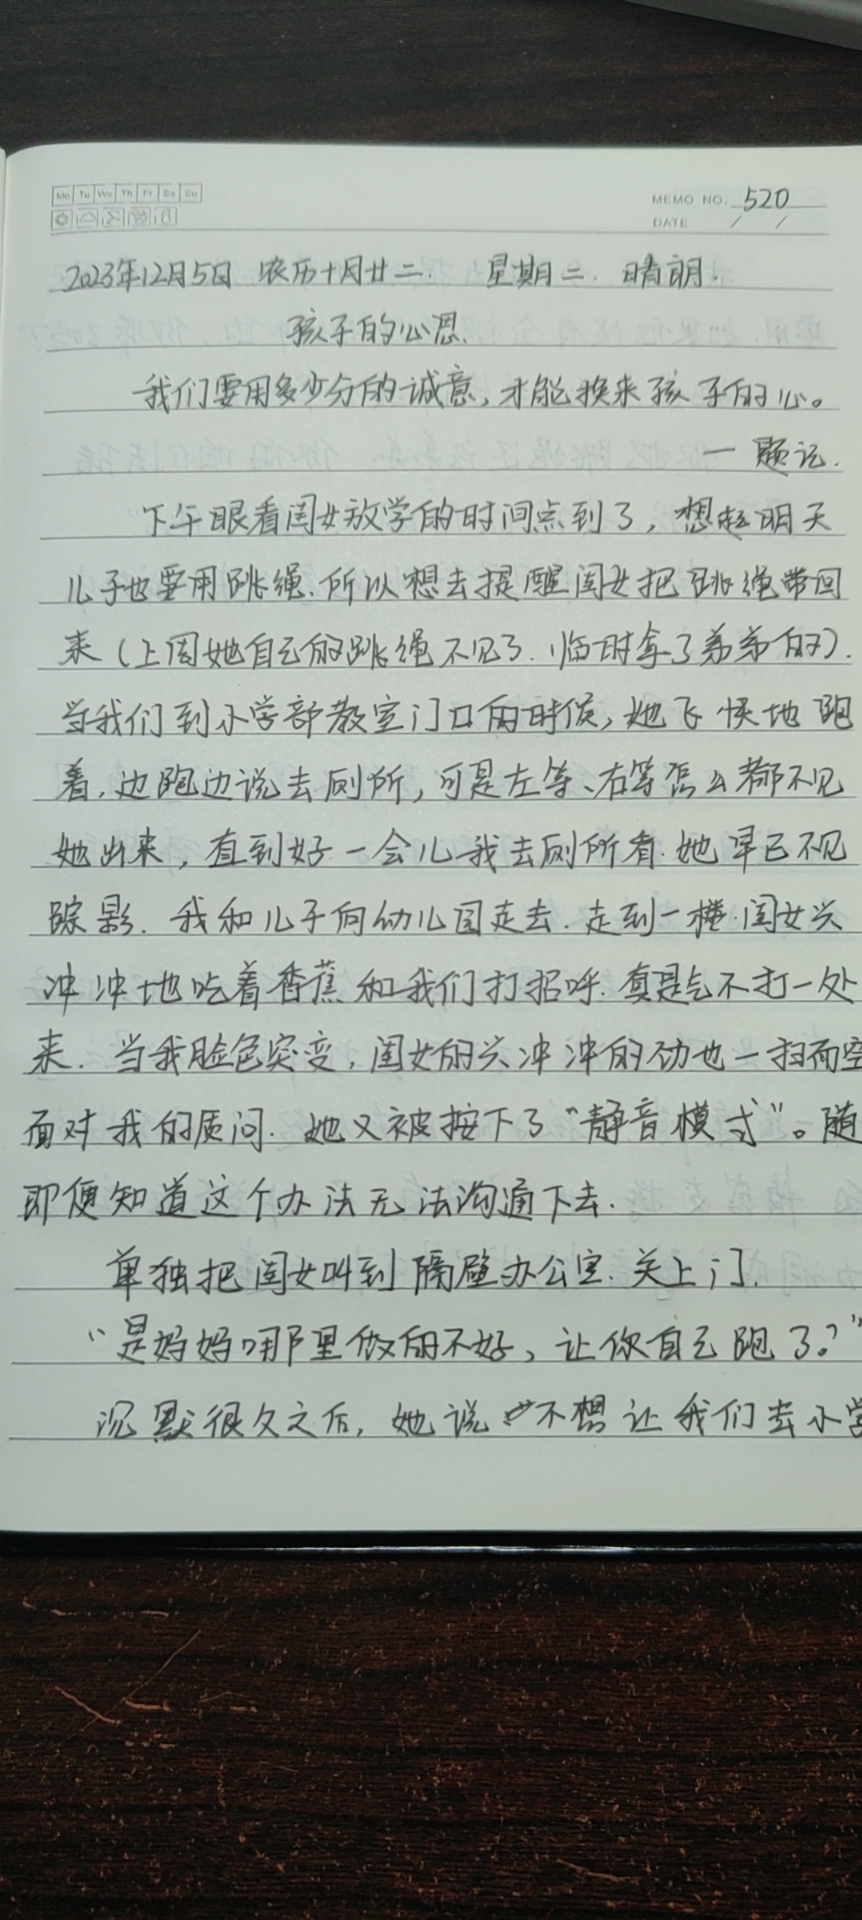 Mo Tu We Th Fr Sa Su
MEMO NO. 520
DATE / /
2023年12月5日 农历十月廿二. 星期二. 晴朗.
孩子的心思.
我们要用多少分的诚意,才能换来孩子的心。
一题记.
下午眼看闺女放学的时间点到了,想起明天
儿子也要用跳绳.所以想去提醒闺女把跳绳带回
来(上周她自己的跳绳不见了.临时拿了弟弟的).
当我们到小学部教室门口的时候,她飞快地跑
着,边跑边说去厕所,可是左等、右等怎么都不见
她出来,直到好一会儿我去厕所看.她早已不见
踪影.我和儿子向幼儿园走去.走到一楼.闺女兴
冲冲地吃着香蕉和我们打招呼.真是气不打一处
来.当我脸色突变,闺女的兴冲冲的劲也一扫而空
面对我的质问.她又被按下了“静音模式”。随
即便知道这个办法无法沟通下去.
单独把闺女叫到隔壁办公室.关上门.
“是妈妈哪里做的不好,让你自己跑了?”
沉默很久之后,她说 不想让我们去小学